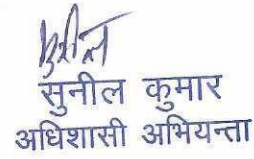 सुनील
सुनील कुमार
अधिशासी अभियन्ता